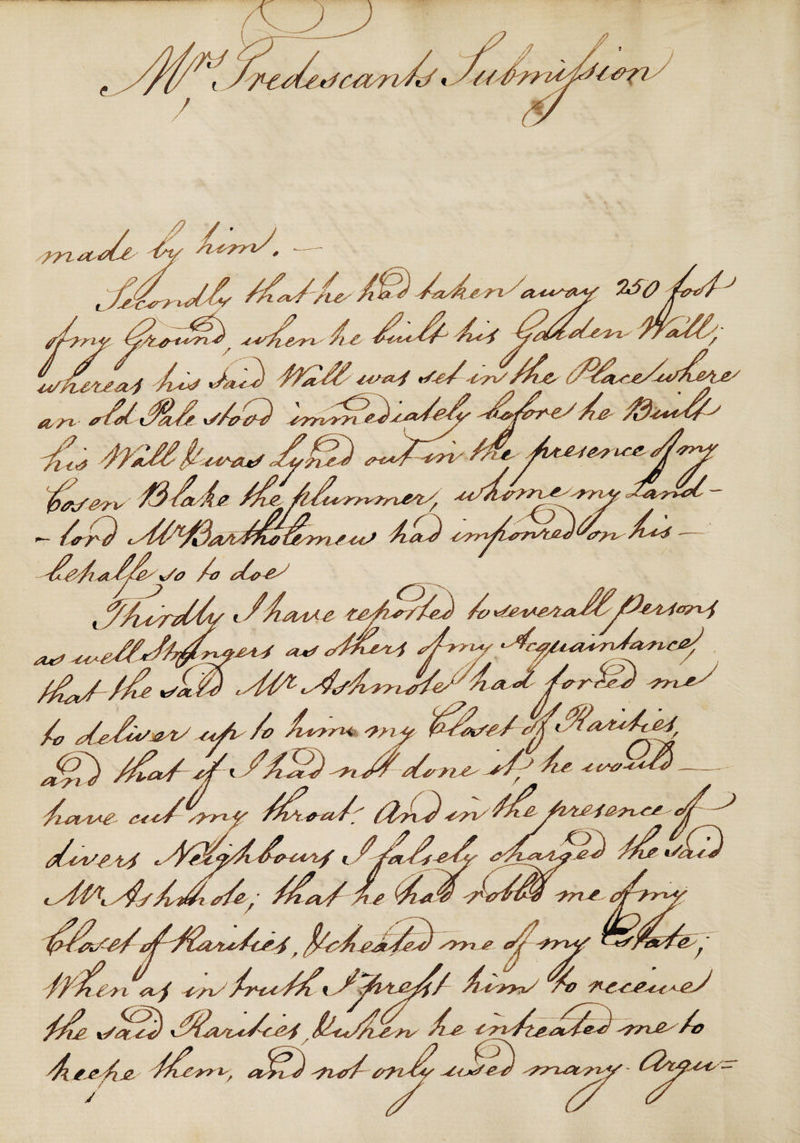 Mrs Tredescants Submission
made by him. —
Secondly that he had taken away 250 foot
of my Ground, when he built his Garden Wall;
whereas his said Wall was set in the Place where
an old Pale stood immediately before he Built
his Wall & was Lyned out in the presence of my
Cosen Blake the plummer, whome my Land-
-lord Mr Bartholemew had imponred on his —
behalfe so to doe
Thirdly I have reported to severall Persons
as well Strangers as others of my Acquaintance,
that the said Mr Ashmole had forced me
to deliver up to him my Closet of Rarities,
and that if I had not done it, he would —
have cut my throat. And in the presence of
divers Neighbours I falsely charged the said
Mr Ashmole; that he had robbd me of my
Closet of Rarities, & cheated me of my Estate;
When as in truth I prest him to receive
the said Rarities, & when he intreated me to
keepe them, and not only used many Argu=